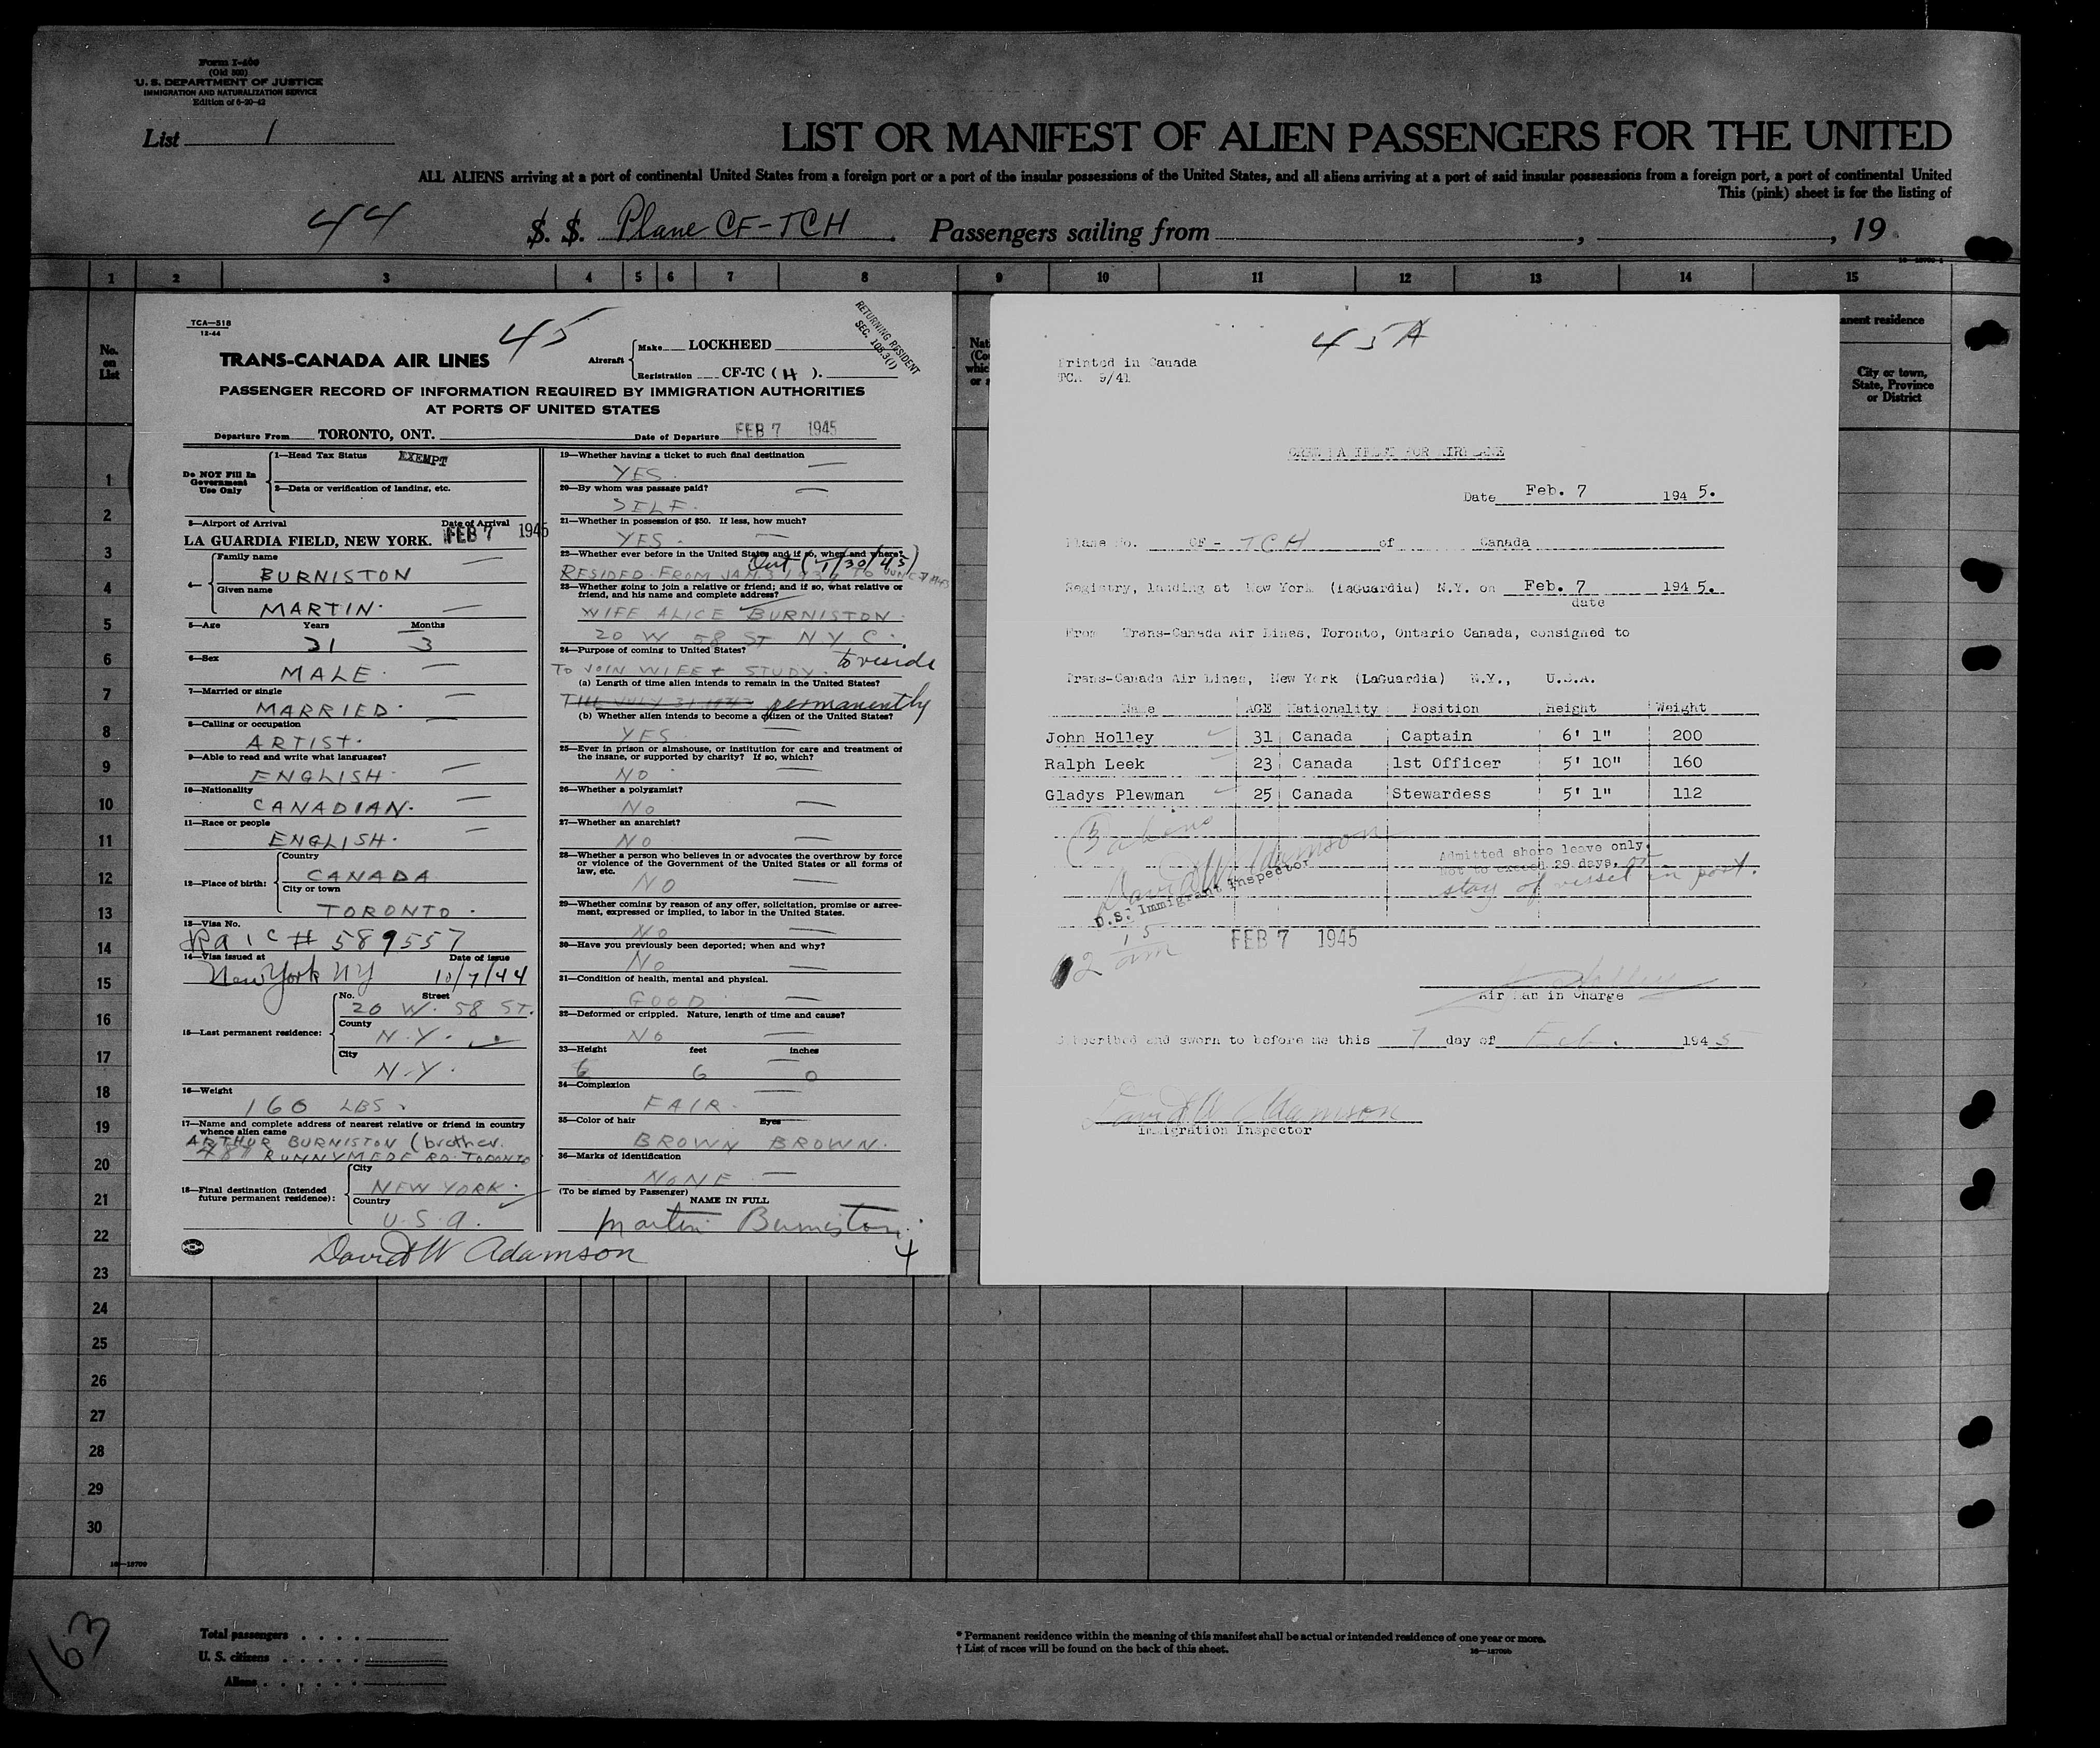 Form I-466
(Old 500)
U. S. DEPARTMENT OF JUSTICE
IMMIGRATION AND NATURALIZATION SERVICE
Edition of 6-20-42
List 1
LIST OR MANIFEST OF ALIEN PASSENGERS FOR THE UNITED
ALL ALIENS arriving at a port of continental United States from a foreign port or a port of the insular possessions of the United States, and all aliens arriving at a port of said insular possessions from a foreign port, a port of continental United
This (pink) sheet is for the listing of
44 S. S. Plane CF-TCH Passengers sailing from , , 19
1 2 3 4 5 6 7 8 9 10 11 12 13 14 15
No. on List
TCA—518
12-44
45
RETURNING RESIDENT
TRANS-CANADA AIR LINES
Aircraft
Make LOCKHEED
Registration CF-TC (H).
PASSENGER RECORD OF INFORMATION REQUIRED BY IMMIGRATION AUTHORITIES
AT PORTS OF UNITED STATES
Departure From TORONTO, ONT. Date of Departure FEB 7 1945
Do NOT Fill In
Government
Use Only
1—Head Tax Status EXEMPT
2—Data or verification of landing, etc.
3—Airport of Arrival Date of Arrival
LA GUARDIA FIELD, NEW YORK. FEB 7 1945
4—
Family name
BURNISTON
Given name
MARTIN.
5—Age Years Months
31 3
6—Sex
MALE.
7—Married or single
MARRIED.
8—Calling or occupation
ARTIST.
9—Able to read and write what languages?
ENGLISH.
10—Nationality
CANADIAN.
11—Race or people
ENGLISH.
12—Place of birth:
Country
CANADA
City or town
TORONTO.
13—Visa No.
# 589557
14—Visa issued at Date of issue
New York NY 10/7/44
15—Last permanent residence:
No. Street
20 W. 58 ST.
County
N.Y.
City
N.Y.
16—Weight
160 LBS.
17—Name and complete address of nearest relative or friend in country
whence alien came
ARTHUR BURNISTON (brother.
RUNNYMEDE RD. TORONTO
18—Final destination (Intended
future permanent residence):
City
NEW YORK.
Country
U.S.A.
19—Whether having a ticket to such final destination
YES.
20—By whom was passage paid?
SELF.
21—Whether in possession of $50. If less, how much?
YES.
22—Whether ever before in the United States and if so, when and where?
Out (1/30/45)
RESIDED FROM JAN.
23—Whether going to join a relative or friend; and if so, what relative or
friend, and his name and complete address?
WIFE ALICE BURNISTON.
20 W 58 ST N.Y.C.
24—Purpose of coming to United States?
to reside
TO JOIN WIFE + STUDY.
(a) Length of time alien intends to remain in the United States?
permanently
(b) Whether alien intends to become a citizen of the United States?
YES
25—Ever in prison or almshouse, or institution for care and treatment of
the insane, or supported by charity? If so, which?
NO
26—Whether a polygamist?
NO
27—Whether an anarchist?
NO
28—Whether a person who believes in or advocates the overthrow by force
or violence of the Government of the United States or all forms of
law, etc.
NO
29—Whether coming by reason of any offer, solicitation, promise or agree-
ment, expressed or implied, to labor in the United States.
NO
30—Have you previously been deported; when and why?
NO
31—Condition of health, mental and physical.
GOOD
32—Deformed or crippled. Nature, length of time and cause?
NO
33—Height feet inches
6 0
34—Complexion
FAIR.
35—Color of hair Eyes
BROWN BROWN.
36—Marks of identification
NONE
(To be signed by Passenger)
NAME IN FULL
Martin Burniston
David W Adamson
45A
Printed in Canada
TCA 9/41
CREW MANIFEST FOR AIRPLANE
Date Feb. 7 194 5.
Plane No. CF - TCH of Canada
Registry, landing at New York (LaGuardia) N.Y. on Feb. 7 194 5.
date
From Trans-Canada Air Lines, Toronto, Ontario Canada, consigned to
Trans-Canada Air Lines, New York (LaGuardia) N.Y., U.S.A.
Name AGE Nationality Position Height Weight
John Holley 31 Canada Captain 6' 1" 200
Ralph Leek 23 Canada 1st Officer 5' 10" 160
Gladys Plewman 25 Canada Stewardess 5' 1" 112
David W Adamson
U.S. Immigrant Inspector
Admitted shore leave only
Not to exceed 29 days, or
stay of vessel in port.
FEB 7 1945
Air Man in Charge
Subscribed and sworn to before me this 7 day of Feb. 194 5
David W Adamson
Immigration Inspector
anent residence
City or town,
State, Province
or District
1
2
3
4
5
6
7
8
9
10
11
12
13
14
15
16
17
18
19
20
21
22
23
24
25
26
27
28
29
30
16—18709
163
Total passengers
U. S. citizens
Aliens
* Permanent residence within the meaning of this manifest shall be actual or intended residence of one year or more.
† List of races will be found on the back of this sheet.